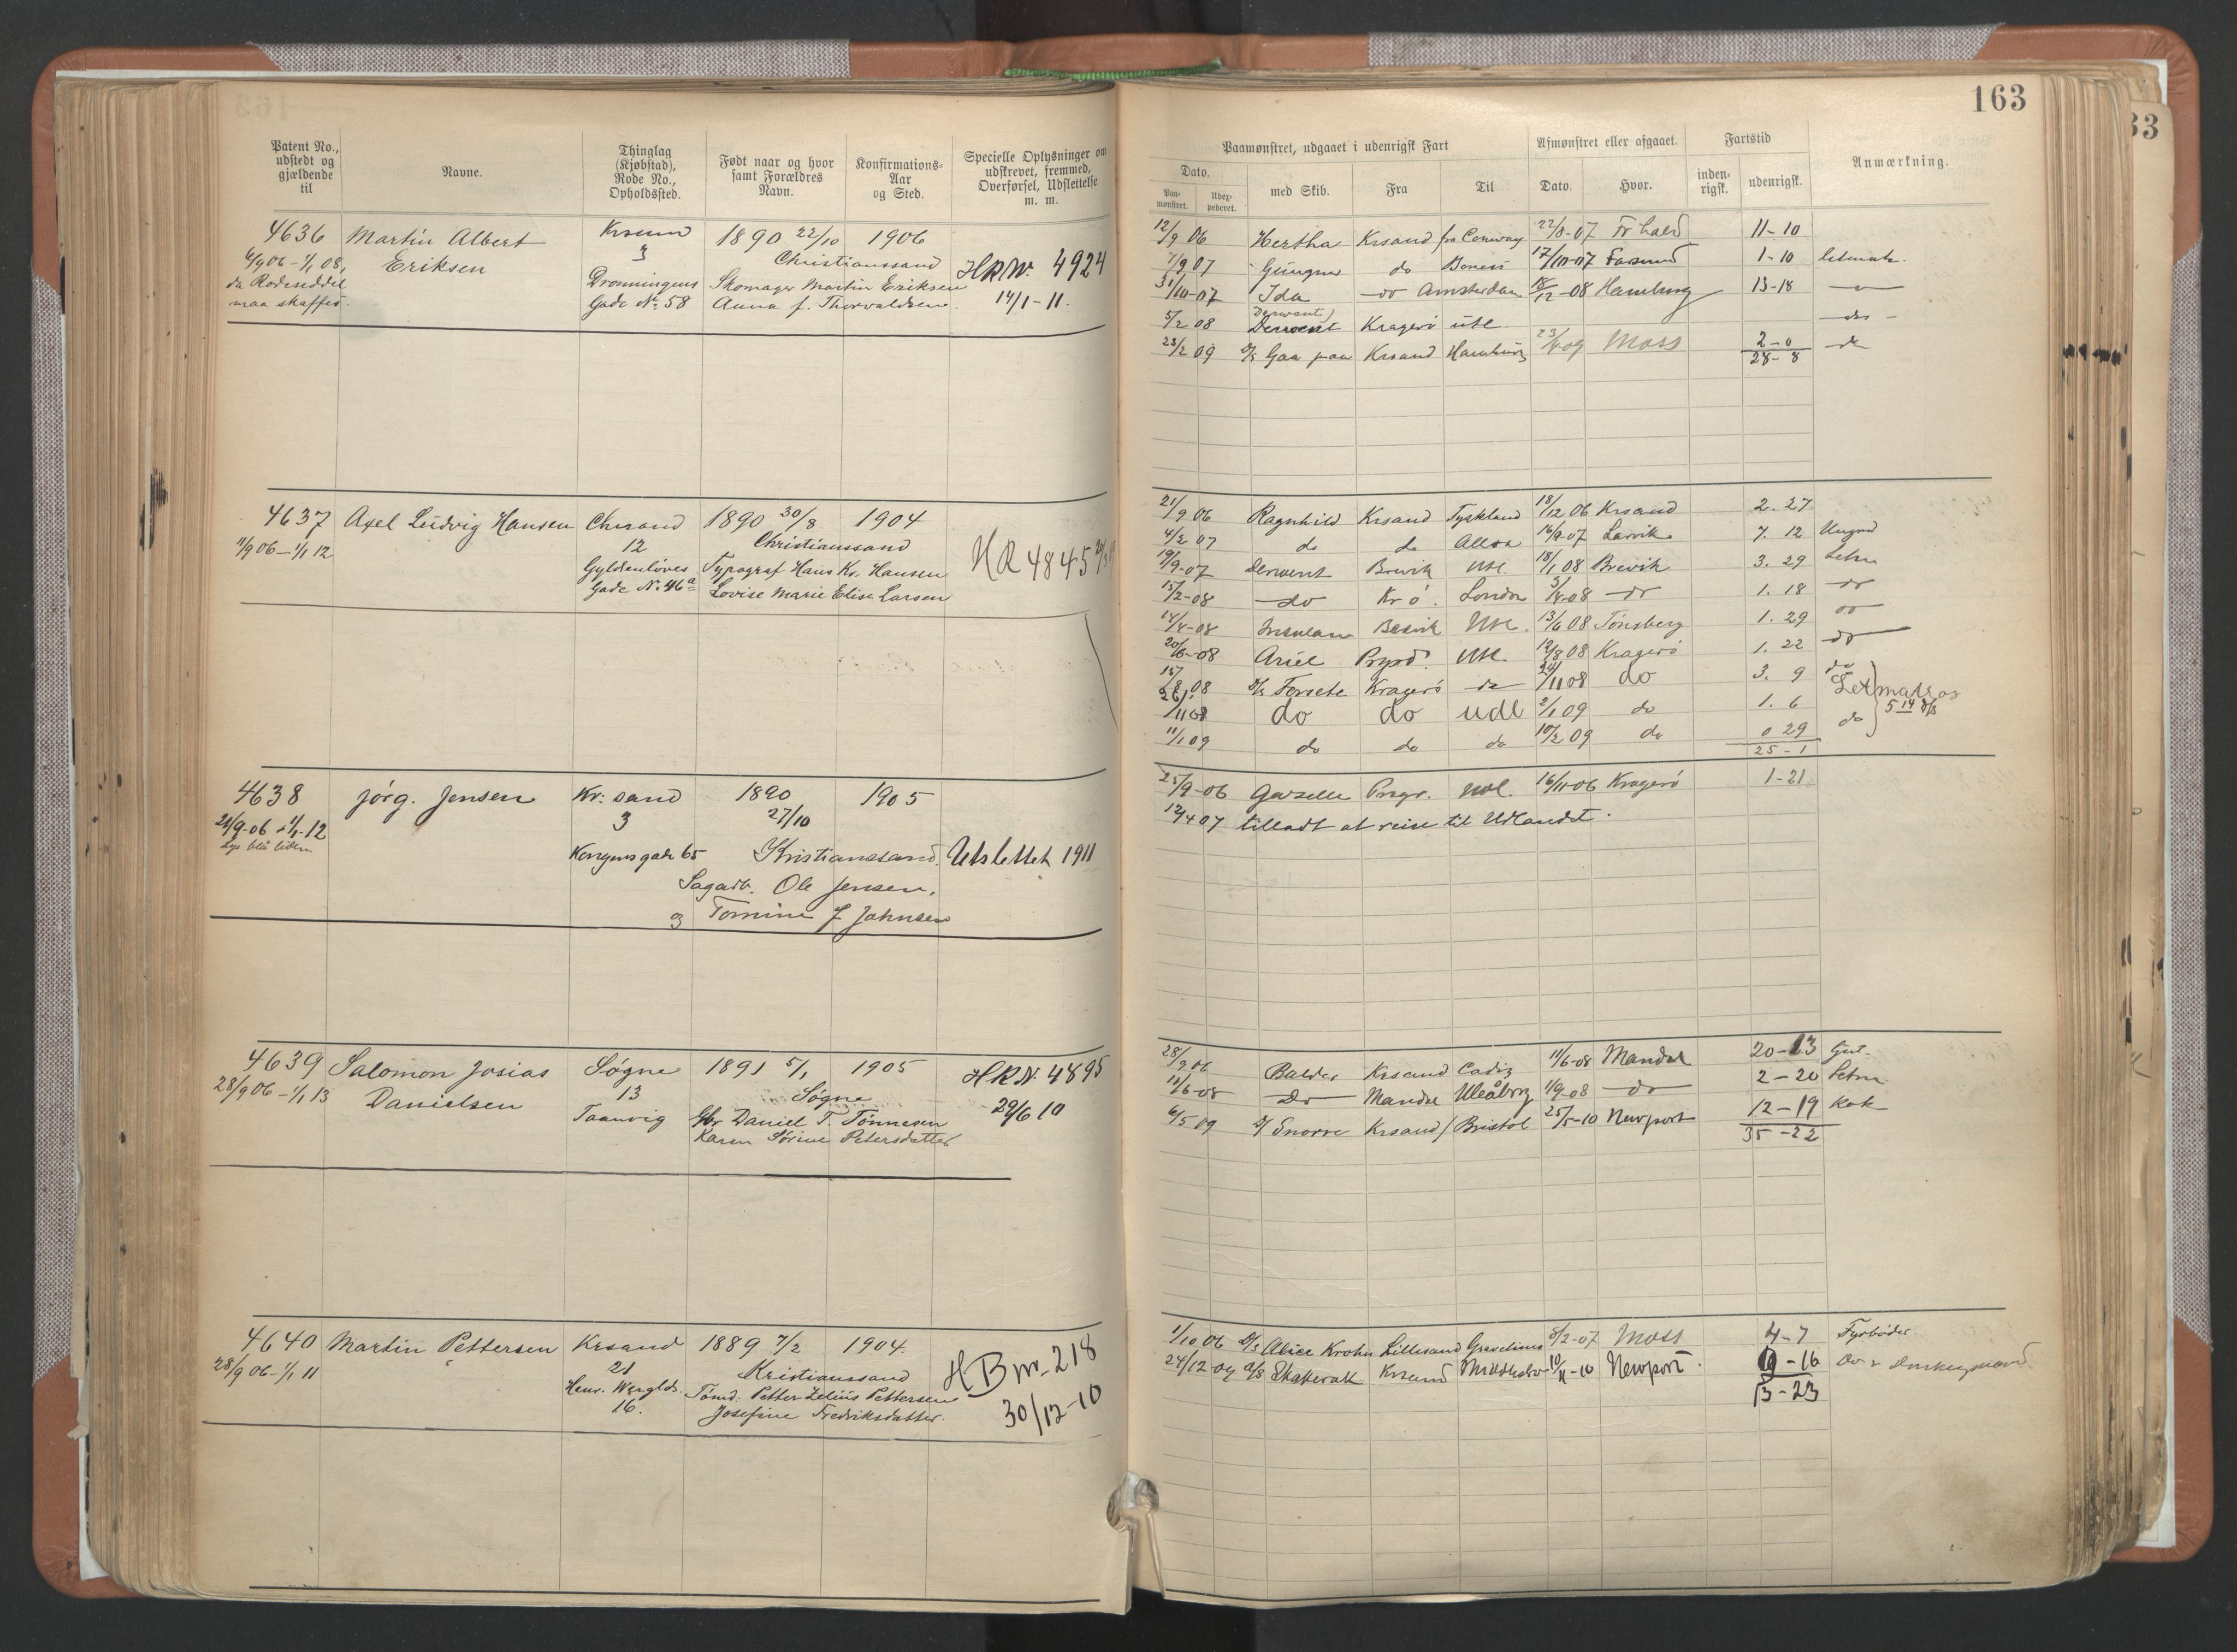 Patent No., udstedt og gjældende til
Navne.
Thinglag (Kjøbstad), Rode No., Opholdssted.
Født naar og hvor samt Forældres Navn.
Konfirmations-Aar og Sted.
Specielle Oplysninger om udskrevet, fremmed, Overførsel, Udslettelse m. m.
4636 Martin Albert 1890 22/10 1906
Eriksen 3 Christianssand HRNr. 4924
da Rodeseddel Dronningens Skomager Martin Eriksen
maa skaffes. Gade No. 58 Anna f. Thorvaldsen 14/1-11.
4637 Axel Ludvig Hansen Chrsand 1890 30/8 1904
11/9 06 - 1/1 12 12 Christianssand HR 4845
Gyldenløves Typograf Hans Kr. Hansen
Gade No. 46a Lovise Marie Elise Larsen
4638 Jørg. Jensen Kr: sand 1890 1905
21/9-06 - 1/1-12 3 27/10
Kongensgade 65 Kristianssand. Utslettet 1911
Sagarb. Ole Jensen,
og Tomine f Johnsen
4639 Salomon Josias Søgne 1891 5/1 1905 HRNr. 4895
28/9 06 - 1/1 13 Danielsen 13 Søgne 29/6 10
Taanvig Gbr Daniel T. Tønnesen
Karen Sørine Petersdatter
4640 Martin Pettersen Krsand 1889 7/2 1904
28/9 06 - 1/1 11 21 Kristianssand HB nr. 218
Henr. Wergelds. Tømd. Petter Zelius Pettersen
16. Josefine Fredriksdatter. 30/12-10
163
33
Paamønstret, udgaaet i udenrigsk Fart
Afmønstret eller afgaaet.
Fartstid
Anmærkning.
Dato.
Paa-mønstret.
Udex-pederet.
med Skib.
Fra
Til
Dato.
Hvor.
inden-rigsk.
udenrigsk.
12/9 06 Hertha Krsand fra Conway 22/8-07 Fr hald 11-10
7/9 07 Gungner do 17/10-07 Farsund 1-10
31/10-07 Ida do Amsterdam 18/12-08 Hamburg 13-18
5/2 08 Derwent Kragerø utl. do
23/2 09 D/S Gaa paa Krsand Hamburg 09 Moss 2-0 do
28-8
21/9 06 Ragnhild Krsand Tyskland 18/12 06 Krsand 2. 27
4/2 07 do do Alloa 16/9-07 Larvik 7. 12 Ungmd
19/9-07 Derwent Brevik Utl. 18/1 08 Brevik 3. 29 Letm
15/2-08 do Kr ø. London 3/4-08 do 1. 18 do
14/4-08 Utl. 13/6 08 Tønsberg 1. 29 do
20/6-08 Ariel Utl. 12/8 08 Kragerø 1. 22 do
15/8 08 D/S Forsete Kragerø do 24/11 08 do 3. 9 do
26/11 08 do do udl 2/1 09 do 1. 6 Letmatros
11/1 09 do do do 10/2 09 do 0 29 do
25-1
25/9-06 Gazelle Prsgr. utl. 16/11-06 Kragerø 1-21
12/4 07 tilladt at reise til Udlandet.
28/9 06 Balder Krsand Cadiz 11/6-08 Mandal 20-13
11/6-08 Do Mandal Uleåborg 1/9-08 do 2-20 Letm
6/5 09 D/ Snorre Krsand / Bristol 25/5-10 Newport 12-19 Kok
35-22
1/10 06 D/S Alice Krohn Lillesand Gravelines 8/2-07 Moss 4-7 Fyrbøder
24/12 09 D/S Skakerak Krsand 10/11-10 Newport. 9-16 Do & Donkeymand
13-23